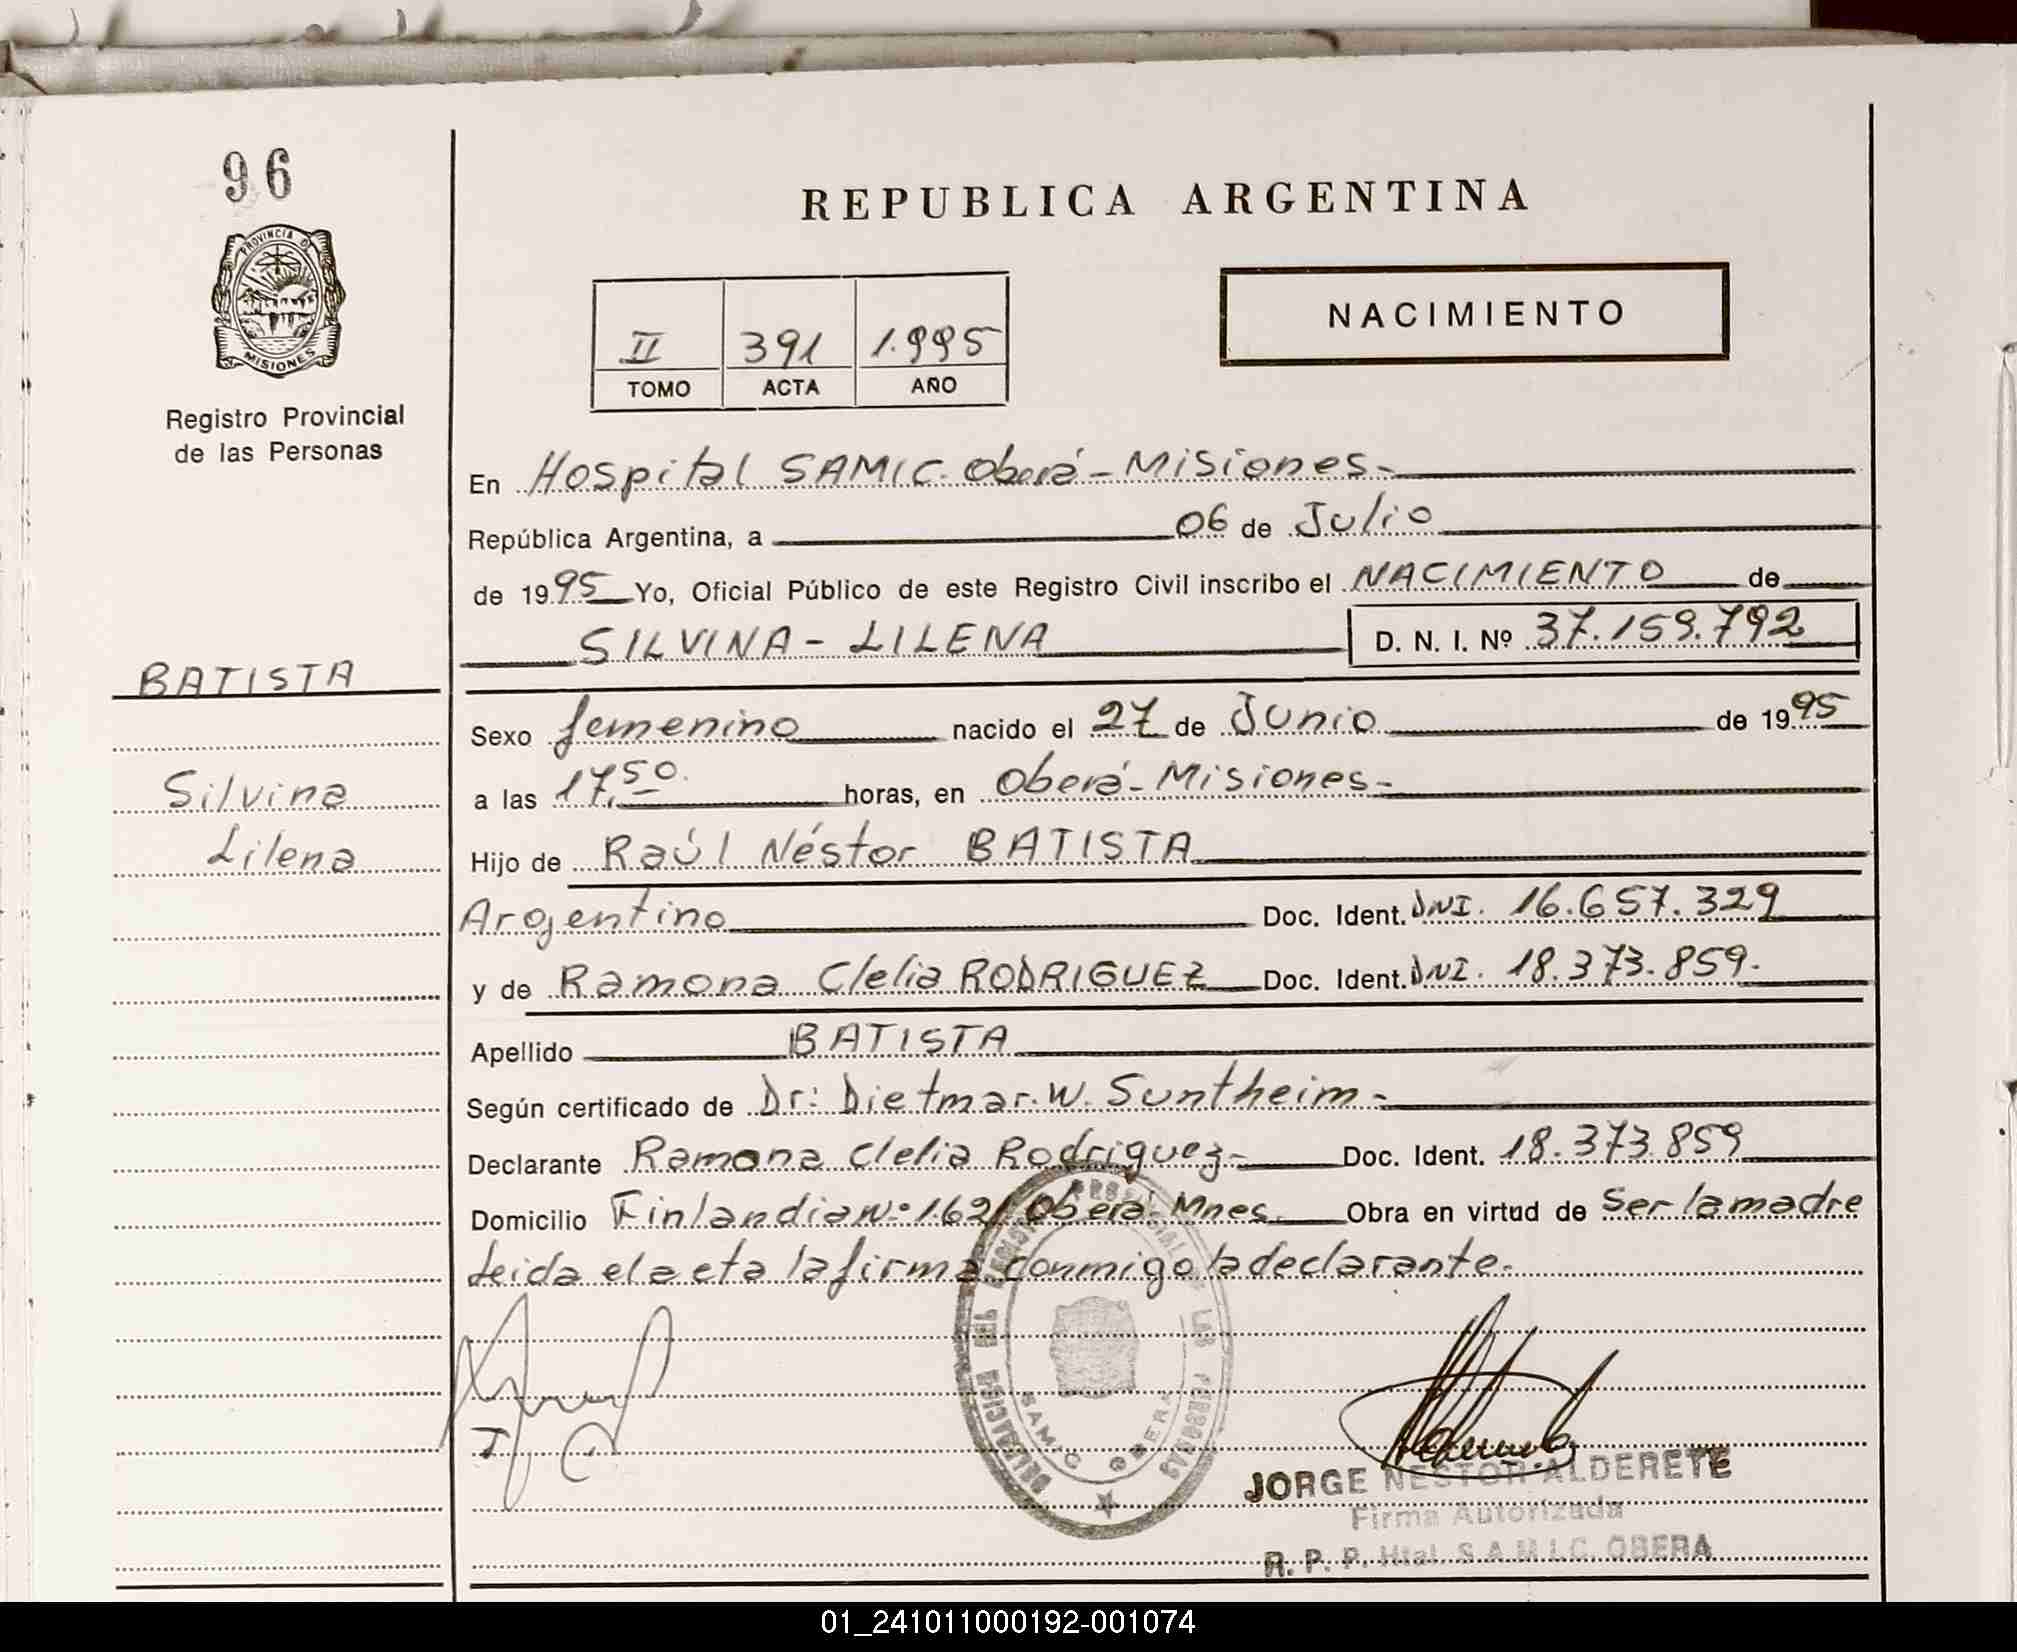 96
PROVINCIA DE
MISIONES
Registro Provincial
de las Personas
REPUBLICA ARGENTINA
II 391 1.995
TOMO ACTA AÑO
NACIMIENTO
En Hospital SAMIC. Oberá - Misiones.-
República Argentina, a 06 de Julio
de 1995 Yo, Oficial Público de este Registro Civil inscribo el NACIMIENTO de
SILVINA - LILENA D. N. I. Nº 37.159.792
BATISTA
Sexo femenino nacido el 27 de Junio de 1995
Silvina
a las 17,50. horas, en Oberá - Misiones -
Lilena
Hijo de Raúl Néstor BATISTA
Argentino Doc. Ident. DNI. 16.657.329
y de Ramona Clelia RODRIGUEZ Doc. Ident. DNI. 18.373.859.
Apellido BATISTA
Según certificado de Dr: Dietmar. W. Suntheim.-
Declarante Ramona Clelia Rodriguez- Doc. Ident. 18.373.859
Domicilio Finlandia Nº 1.621 Oberá - Mnes. Obra en virtud de Ser la madre
Leida el acta la firma conmigo la declarante.
DELEGACION DEL LAS PERSONAS
SAMIC OBERA
JORGE NESTOR ALDERETE
Firma Autorizada
R. P. P. Htal. S.A.M.I.C. OBERA
01_241011000192-001074